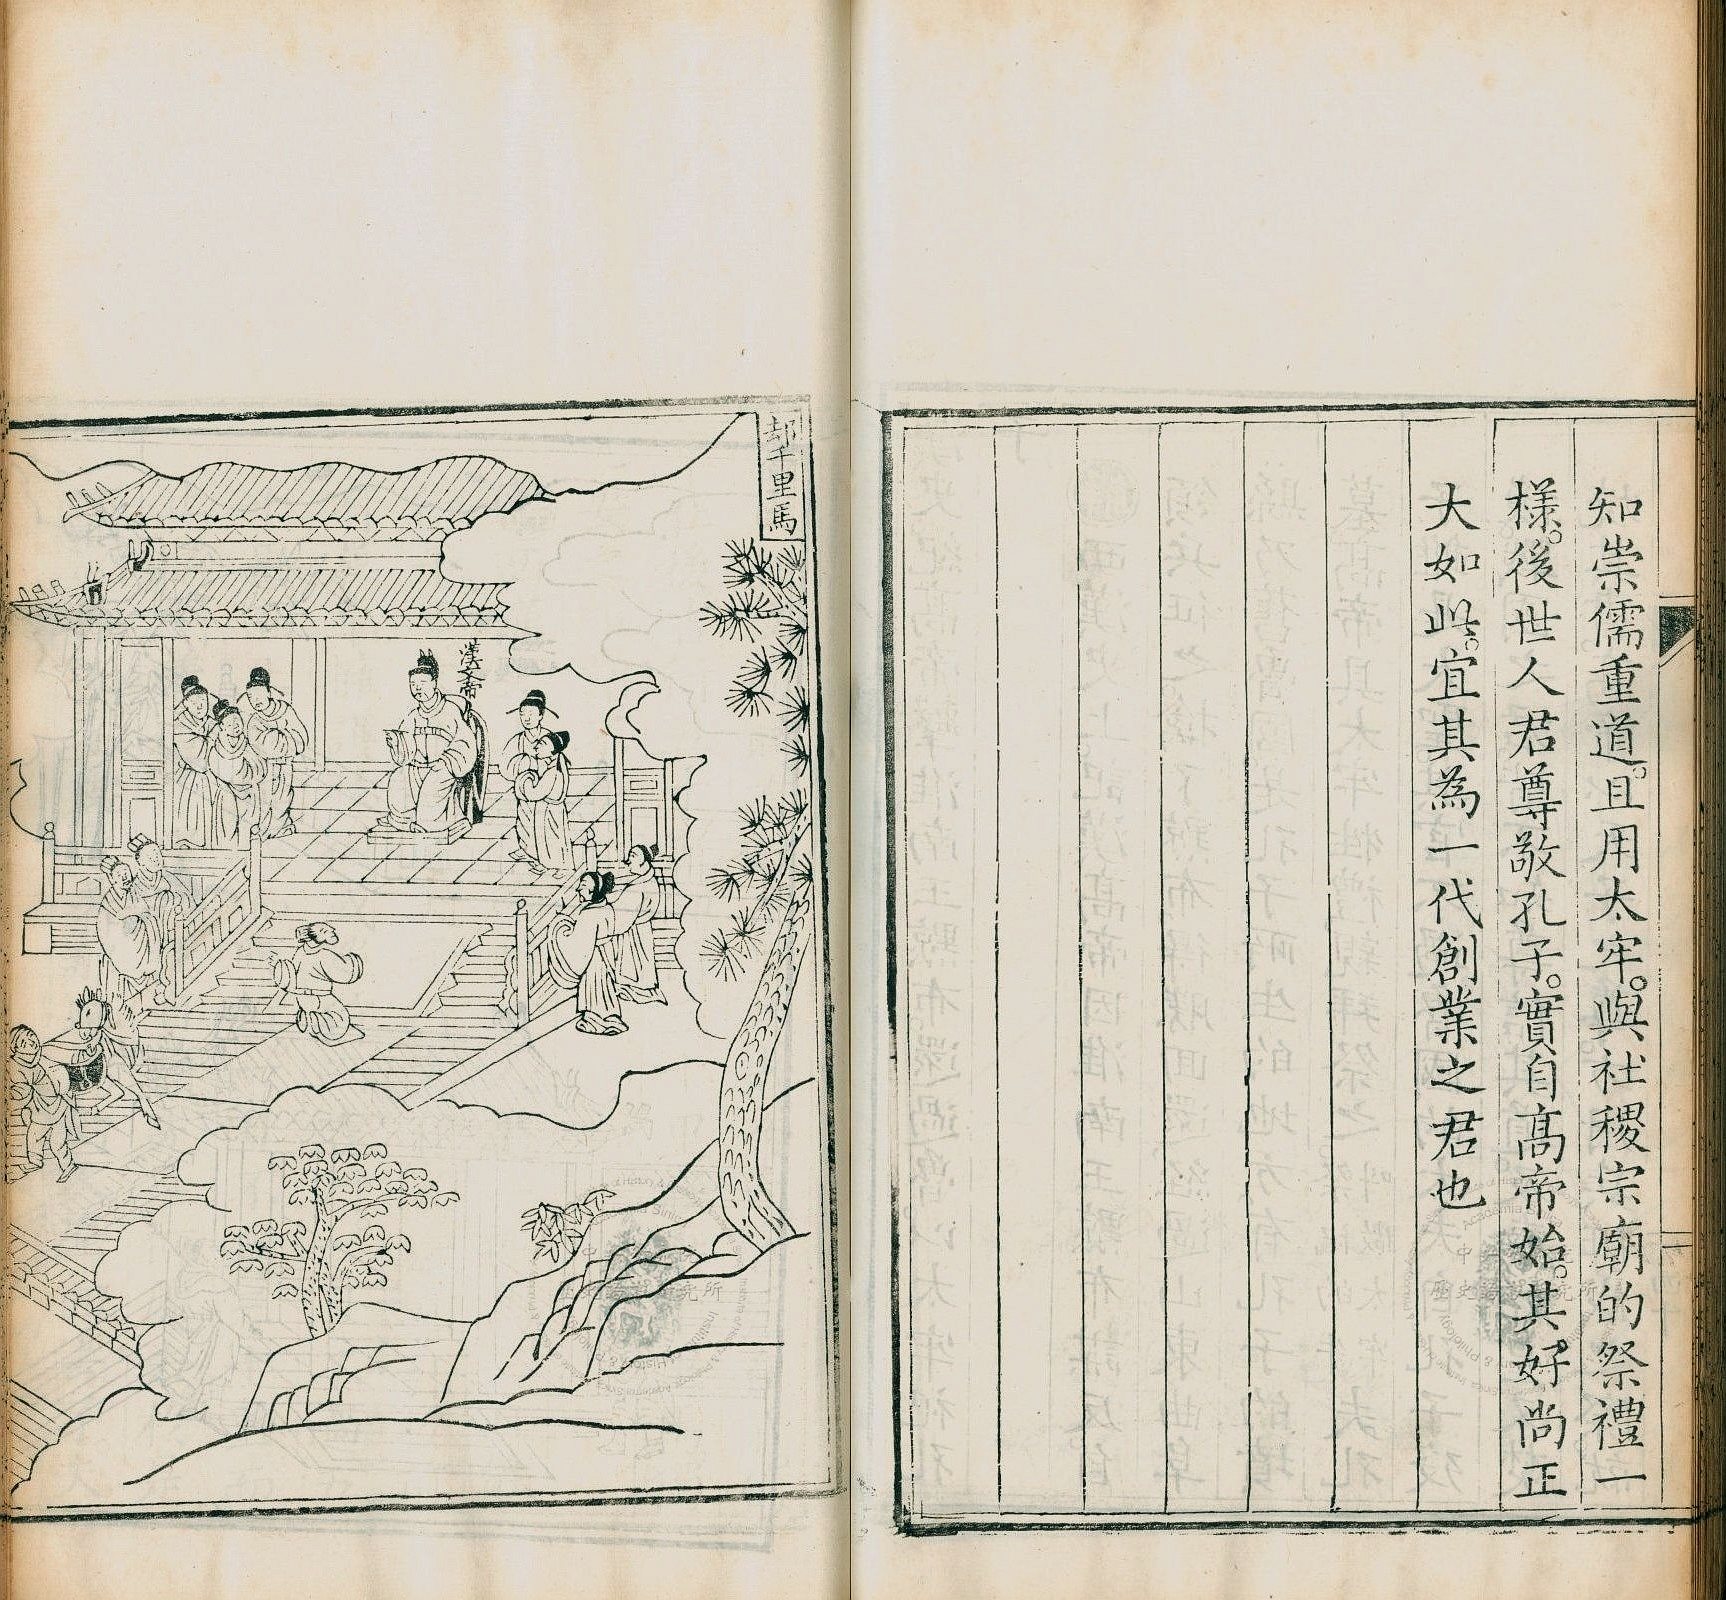 知崇儒重道。且用太牢。與社稷宗廟的祭禮一
樣。後世人君尊敬孔子。實自髙帝始。其好尚正
大如此。宜其為一代創業之君也
却千里馬
漢文帝